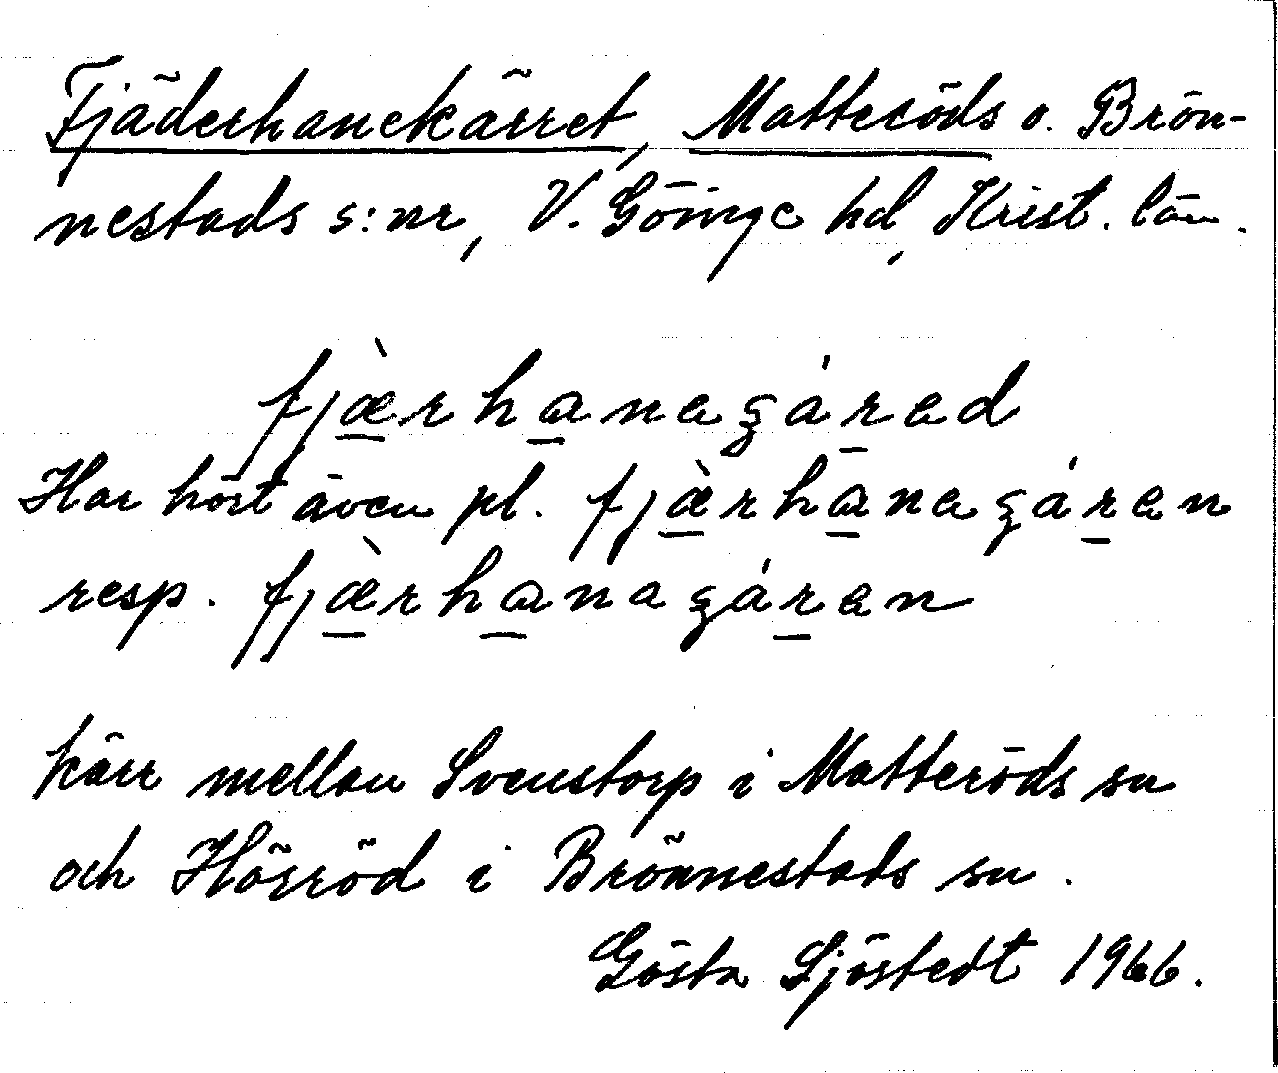 Fjäderhanekärret, Matteröds o. Brön-
nestads s:nr, V. Göinge hd, Krist. län.
fjæ̀rhanagárad
Har hört även pl. fjæ̀rhanagáran
resp. fjæ̀rhanagáran
kärr mellan Svenstorp i Matteröds sn
och Hörröd i Brönnestads sn.
Gösta Sjöstedt 1966.